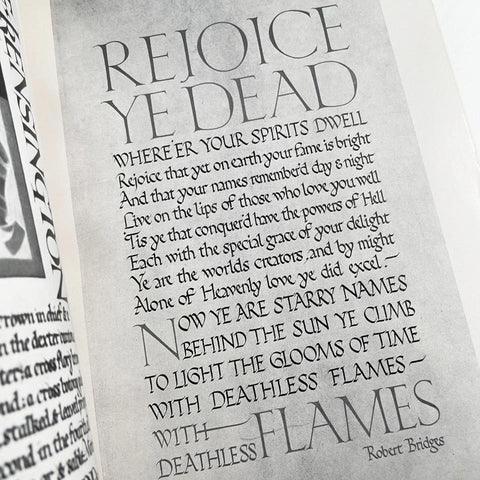 REJOICE
YE DEAD
WHERE'ER YOUR SPIRITS DWELL
Rejoice that yet on earth your fame is bright
And that your names remember'd day & night
Live on the lips of those who love you well
Tis ye that conquer'd have the powers of Hell
Each with the special grace of your delight
Ye are the worlds creators, and by might
Alone of Heavenly love ye did excel.—
NOW YE ARE STARRY NAMES
BEHIND THE SUN YE CLIMB
TO LIGHT THE GLOOMS OF TIME
WITH DEATHLESS FLAMES—
WITH—
DEATHLESS FLAMES
Robert Bridges
in chief &
n the dexter
a cross
& a cross
in the
& sable